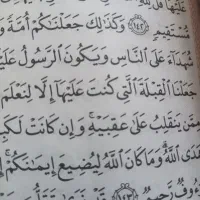 عَلَيْهَا قُل لِّلَّهِ
مُّسْتَقِيمٍ ١٤٢ وَكَذَٰلِكَ جَعَلْنَٰكُمْ أُمَّةً وَ
شُهَدَآءَ عَلَى ٱلنَّاسِ وَيَكُونَ ٱلرَّسُولُ عَلَيْـ
جَعَلْنَا ٱلْقِبْلَةَ ٱلَّتِى كُنتَ عَلَيْهَآ إِلَّا لِنَعْلَمَ
مِمَّن يَنقَلِبُ عَلَىٰ عَقِبَيْهِ ۚ وَإِن كَانَتْ لَكَبِيـ
هَدَى ٱللَّهُ ۗ وَمَا كَانَ ٱللَّهُ لِيُضِيعَ إِيمَٰنَكُمْ ۚ إِ
ءُوفٌ رَّحِيمٌ ١٤٣ قَدْ نَرَىٰ تَقَلُّبَ